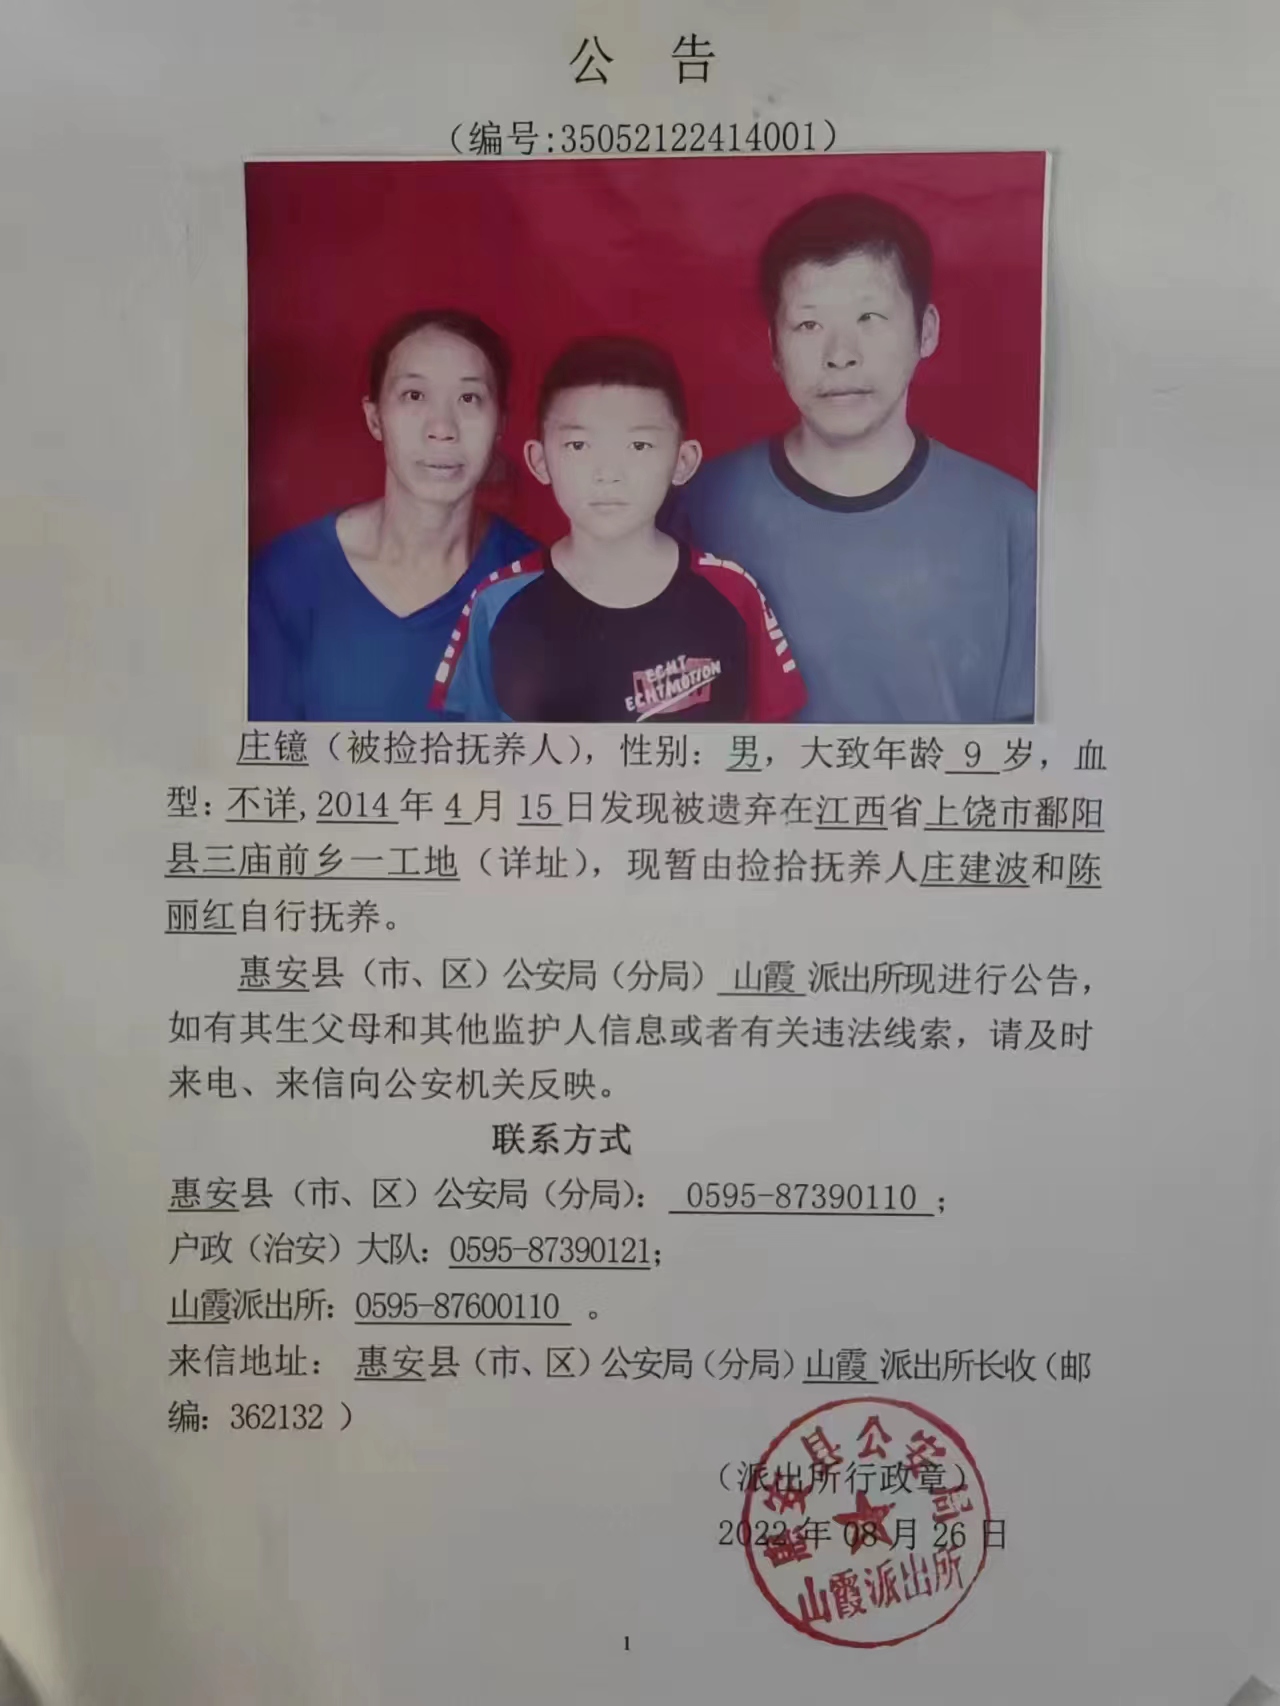 公 告
（编号:35052122414001）
ECHT
ECHTMOTION
庄镱（被捡拾抚养人），性别：男，大致年龄 9 岁，血
型：不详,2014 年 4 月 15 日发现被遗弃在江西省上饶市鄱阳
县三庙前乡一工地（详址），现暂由捡拾抚养人庄建波和陈
丽红自行抚养。
惠安县（市、区）公安局（分局） 山霞 派出所现进行公告，
如有其生父母和其他监护人信息或者有关违法线索，请及时
来电、来信向公安机关反映。
联系方式
惠安县（市、区）公安局（分局）： 0595-87390110 ；
户政（治安）大队：0595-87390121；
山霞派出所：0595-87600110 。
来信地址： 惠安县（市、区）公安局（分局）山霞 派出所长收（邮
编：362132 ）
（派出所行政章）
2022 年 08 月 26 日
惠安县公安局
山霞派出所
1